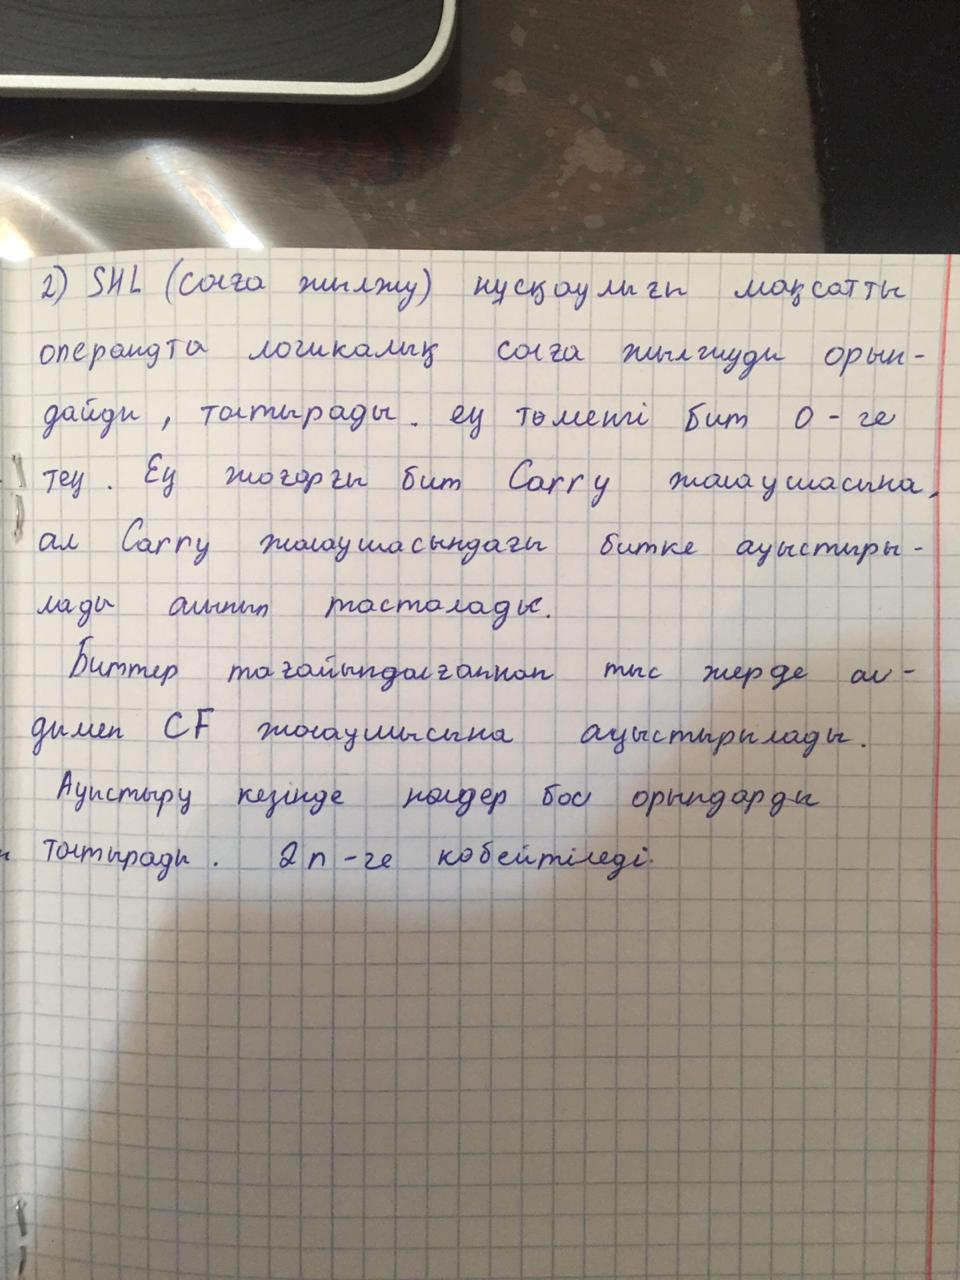 2) SHL (солға жылжу) нұсқаулығы мақсатты
операндта логикалық солға жылжуды орын-
дайды, толтырады. ең төменгі бит 0-ге
тең. Ең жоғарғы бит Carry жалаушасына,
ал Carry жалаушасындағы битке ауыстыры-
лады алынып тасталады.
Биттер тағайындалғаннан тыс жерде ал-
дымен CF жалаушысына ауыстырылады.
Ауыстыру кезінде нөлдер бос орындарды
толтырады. 2n-ге көбейтіледі.